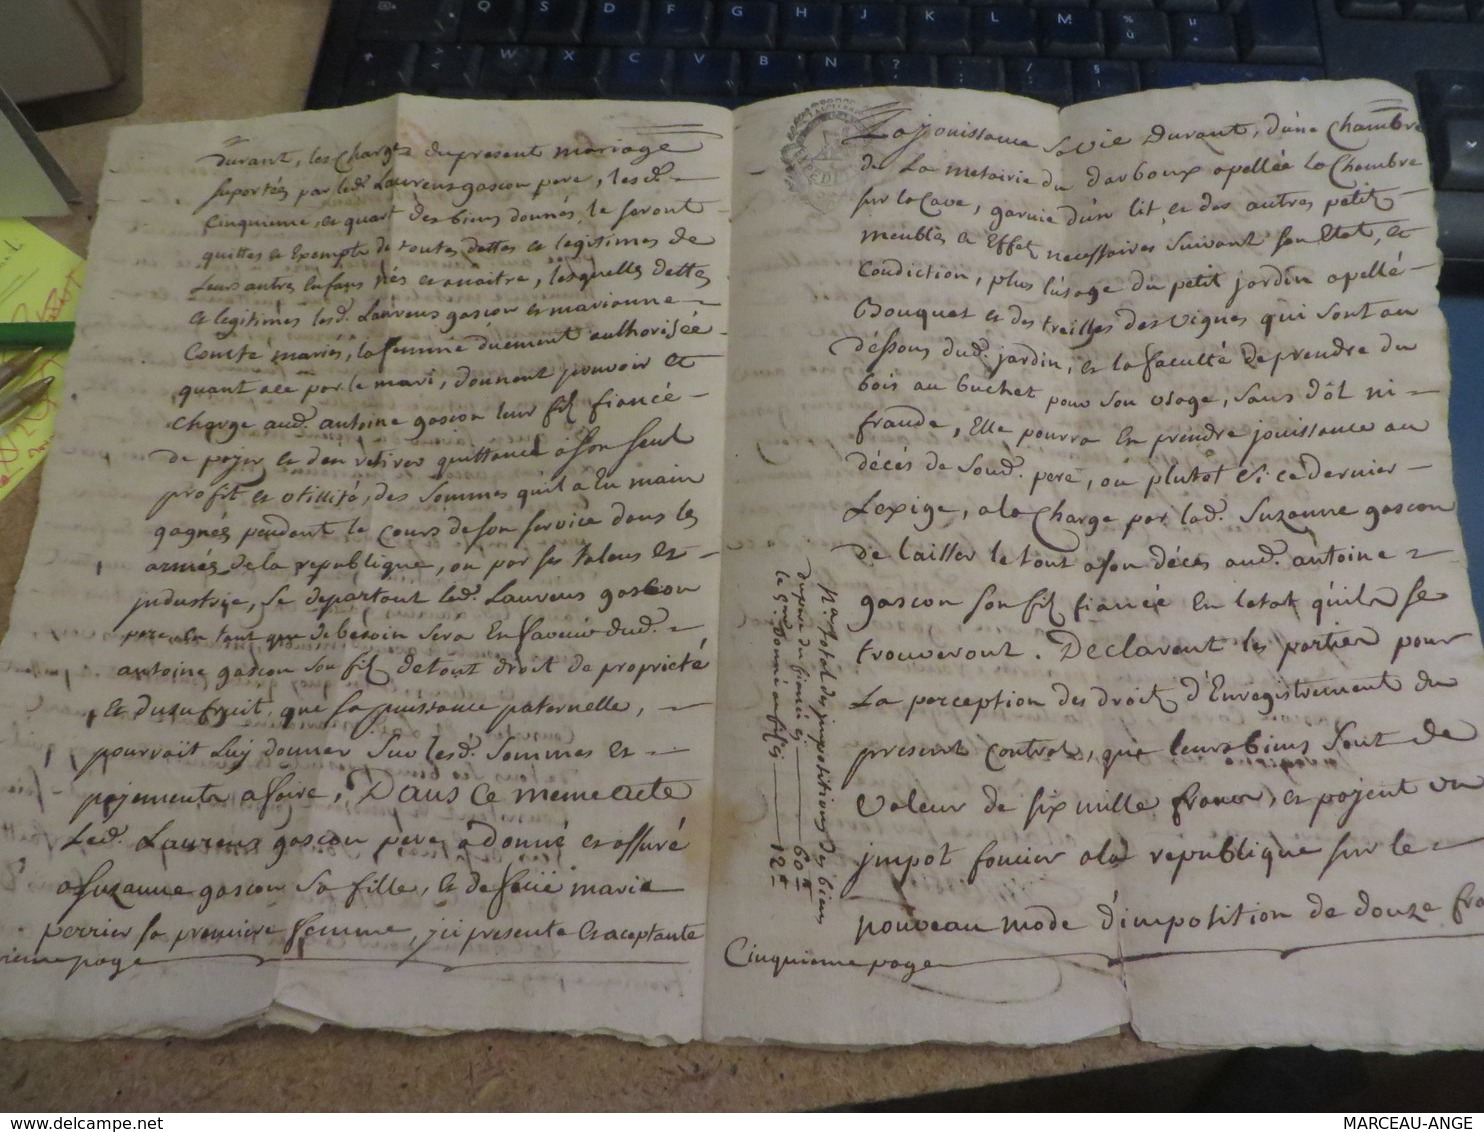 durant, les charges du present mariage
suportées par led. Laurens gascon pere, lesd.
cinquieme, et quart des biens donnés, le seront
quittes et exempts de toutes dettes et legitimes de
leurs autres enfans nés et anaitre, lesquelles dettes
et legitimes lesd. Laurens gascon et marianne
Comte mariés, la femme duement authorisée
quant ace par le mari, donnent pouvoir et
charge aud. antoine gascon leur fils fiancé
de payer et d'en retirer quittance a son seul
profit et utilité, des sommes qu'il a en main
gagnés pendant le cours de son service dans les
armés de la republique, ou par ses talens et
industrie, se departant led. Laurens gascon
pere en tant que de besoin sera en faveur dud.
antoine gascon son fils de tout droit de proprieté
et dusufruit, que sa puissance paternelle,
pourroit luy donner sur lesd. sommes et
payements a faire, Dans ce meme acte
Led. Laurens gascon pere a donné et assuré
a Suzanne gascon sa fille, et de feüe marie
perrier sa premiere femme, ici presente et aceptante
ieme page
La jouissance sa vie Durant, d'une chambre
de La metairie du darboux apellée la chambre
sur la Cave, garnie d'un lit, et des autres petits
meubles et Effets necessaires suivant son Etat, et
Condiction, plus l'usage du petit jardin apellé
Bouquet et des treilles des vignes qui sont au
déssous dud. jardin, et la faculté de prendre du
bois au buchet pour son usage, sans dôl ni
fraude, Elle pourra En prendre jouissance au
décés de soud. pere, ou plutot si ce dernier
Lexige, a la charge par lad. Suzanne gascon
de laisser le tout a son décés aud. antoine
gascon son fils fiancé En letat qu'ils se
trouveront. Declarent les parties pour
La perception des droits d'Enregistrement du
present contrat, que leurs biens sont de
Valeur de six mille francs, et payent un
impot foncier a la republique sur le
nouveau mode d'imposition de douze fra
Cinquieme page
total des impositions des biens
du pere du fiancé 60
12
Q S D F G H J K L M
W X C V B N
MARCEAU-ANGE